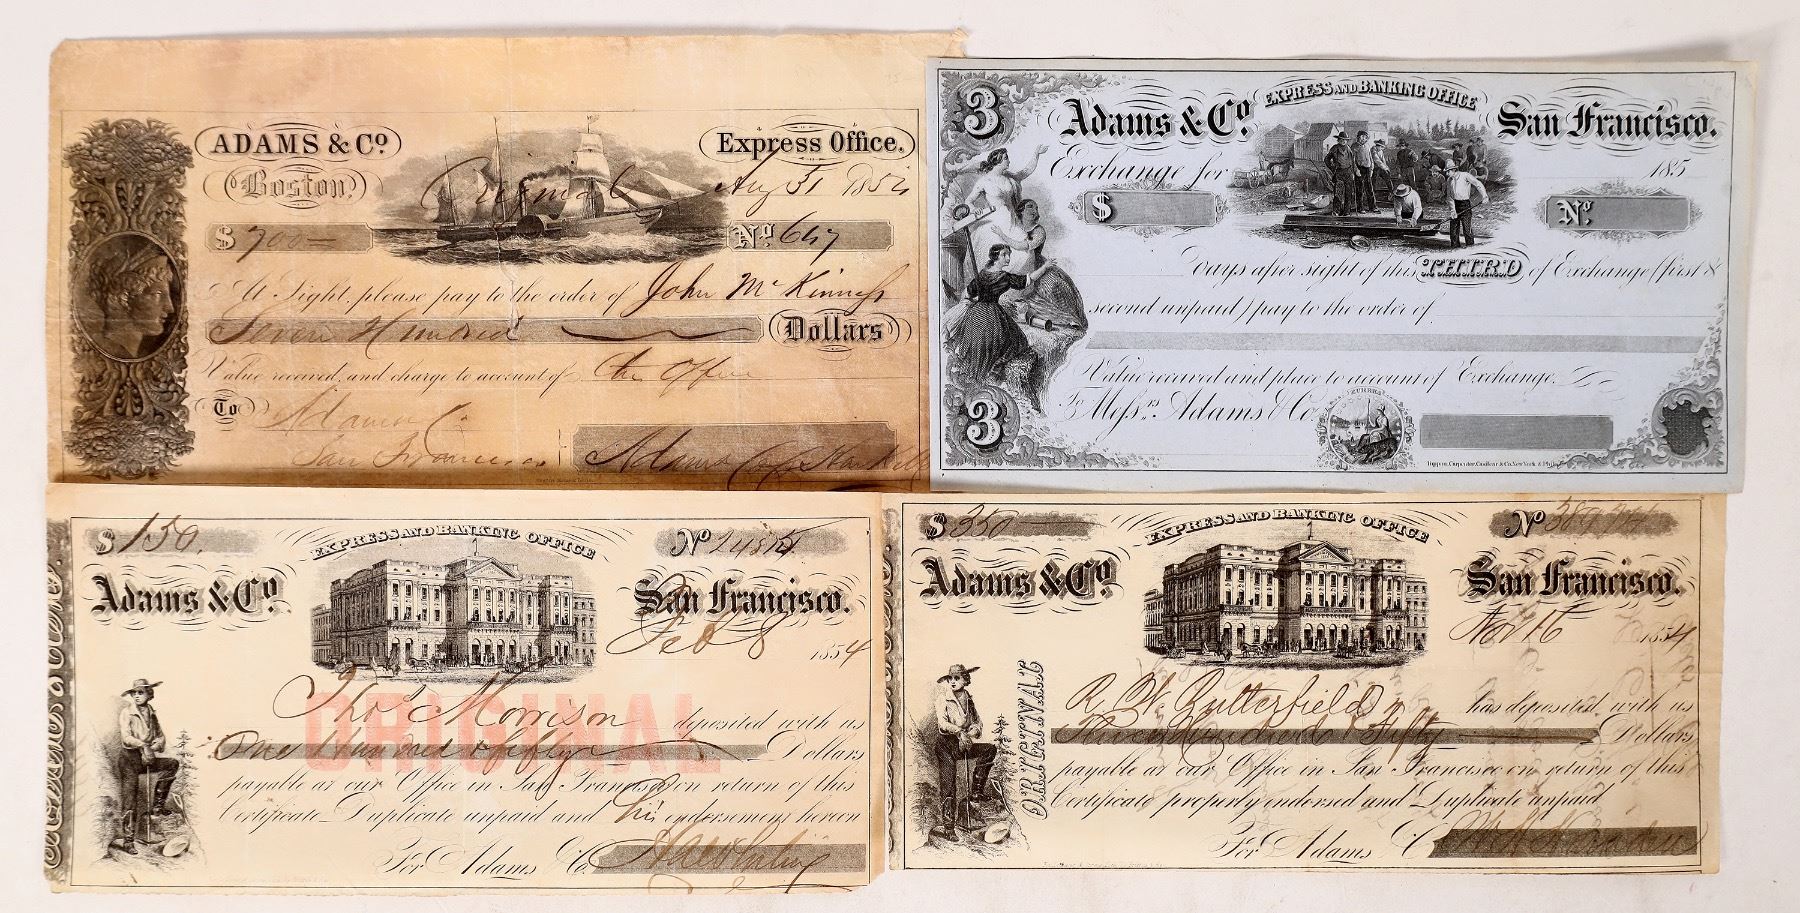 ADAMS & Co.
Boston.
Express Office.
Original
Aug 31 1854
$ 700 —
No. 647
At Sight, please pay to the order of John McKinness
Seven Hundred Dollars
Value received, and charge to account of the Office
To Adams Co.
San Francisco
Adams Co
3
Adams & Co. EXPRESS AND BANKING OFFICE San Francisco.
Exchange for 185
$
No.
Days after sight of this THIRD of Exchange (first &
second unpaid) pay to the order of
Value received and place to account of Exchange.
To Messrs. Adams & Co.
EUREKA
3
Toppan, Carpenter, Casilear & Co. New York & Phila.
$ 150.
EXPRESS AND BANKING OFFICE
No
Adams & Co. San Francisco.
Feb 8 1854
ORIGINAL
Thos. Morrison deposited with us
One Hundred & fifty Dollars
payable at our Office in San Francisco on return of this
Certificate Duplicate unpaid and his endorsement hereon
For Adams & Co.
$ 350 —
EXPRESS AND BANKING OFFICE
No
Adams & Co. San Francisco.
Nov 16 1854
ORIGINAL
R. W. Butterfield has deposited with us
Three Hundred & Fifty Dollars
payable at our Office in San Francisco on return of this
Certificate properly endorsed and Duplicate unpaid
For Adams & Co.